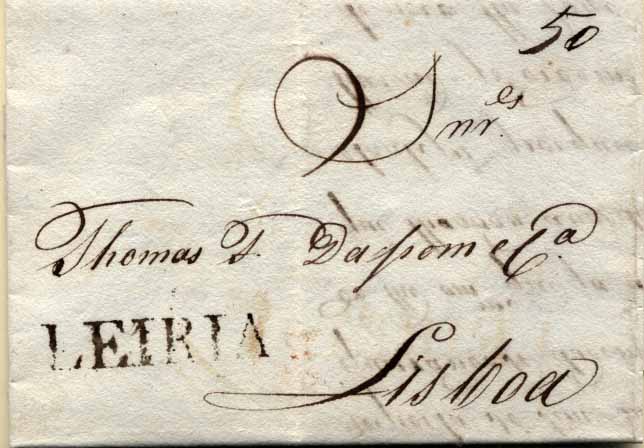 50
Snr.es
Thomas T. Dapom e Ca.
LEIRIA
Lisboa